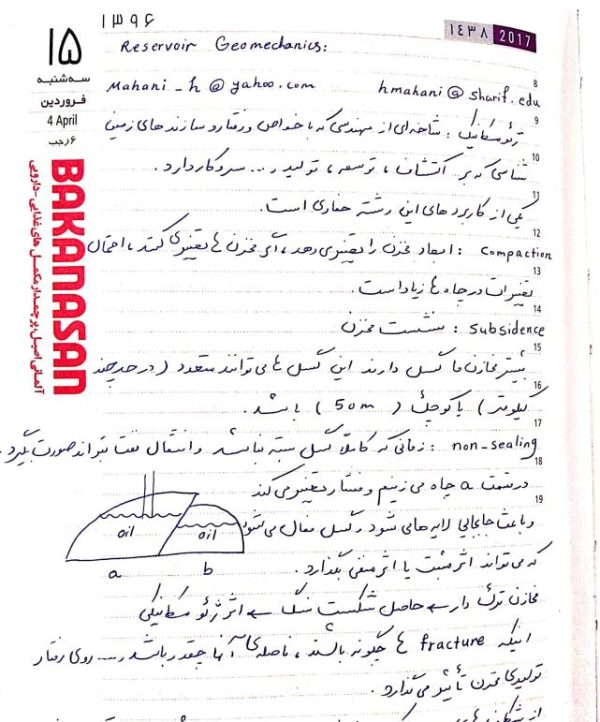 ۱۳۹۶
۱۴۳۸ 2017
۱۵
سه‌شنبه
فروردین
4 April
۶ رجب
BAKANASAN
آلمانی اصیل پرچمدار مکمل های غذایی-دارویی
Reservoir Geomechanics:
8
Mahani_h@yahoo.com hmahani@sharif.edu
9
ژئومکانیک : شاخه‌ای از مهندسی که با خواص و رفتار و سازندهای زمین
10
شناسی که بر اکتشاف ، توسعه ، تولید و ... سروکار دارد.
11
یکی از کاربردهای این رشته حفاری است.
12
compaction : ابعاد مخزن را تغییر می دهد ، اگر مخزن ها تغییری کنند ، احتمال
13
تغییرات در چاه ها زیاد است.
14
subsidence : نشست مخزن
15
بیشتر مخازن ما گسل دارند این گسل ها می توانند متعدد ( در حد چند
16
کیلومتر ) یا کوچک ( 50m ) باشد.
17
non-sealing : زمانی که کاملا گسل بسته نباشد و انتقال نفت می تواند صورت بگیرد.
18
در سمت a چاه می زنیم و فشار تغییر می کند
19
و باعث جابجایی لایه های شود و گسل فعال می شود
oil oil
a b
که می تواند اثر مثبت یا اثر منفی بگذارد.
مخازن ترک دار ← حاصل شکست سنگ ← اثر ژئومکانیکی
اینکه fracture ها چگونه باشند ، فاصله‌ی آنها چقدر باشد و ... روی رفتار
تولیدی مخزن تأثیر می گذارد.